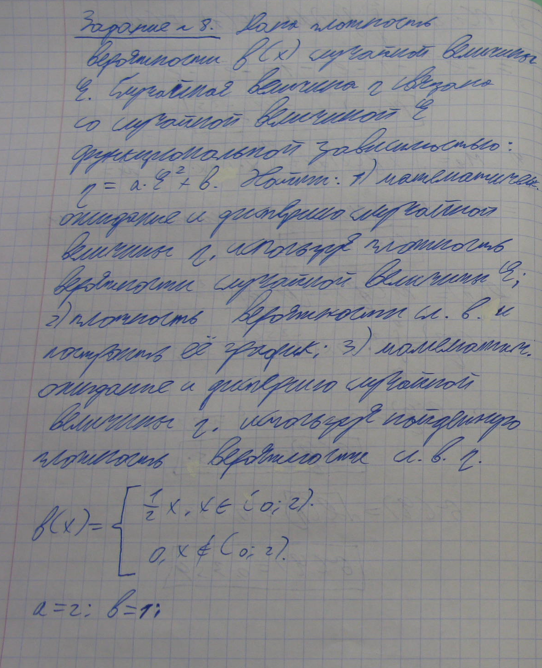 Задание № 8. Дана плотность
вероятности f(x) случайной величины
ξ. Случайная величина η связана
со случайной величиной ξ
функциональной зависимостью:
η = a·ξ² + b. Найти: 1) математичек.
ожидание и дисперсию случайной
величины η, используя плотность
вероятности случайной величины ξ;
2) плотность вероятности сл. в. и
построить её график; 3) математич.
ожидание и дисперсию случайной
величины η, используя найденную
плотность вероятности сл. в. η.
f(x) = { 1/2 x, x ∈ (0; 2).
0, x ∉ (0; 2).
a = 2; b = 1;